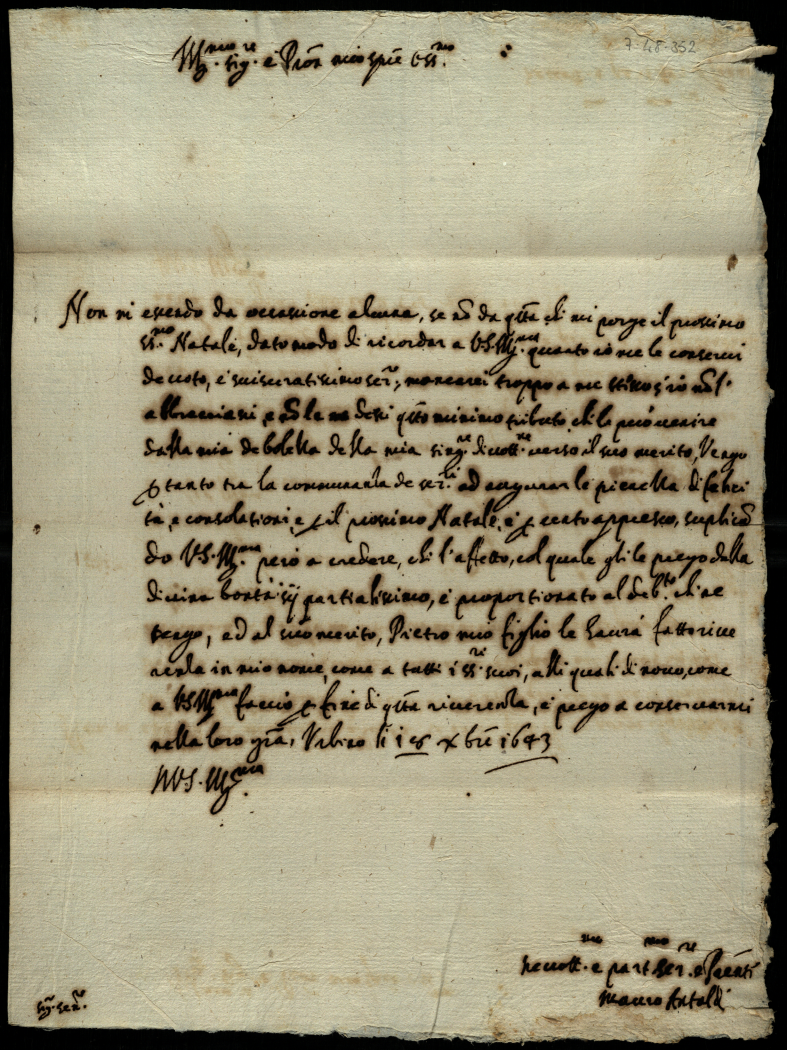 7-48-352
Ill.mo sig.re e Pron mio sem.e Oss.mo
Non mi essendo da occasione alcuna, se nõ da q̃sta che mi porge il prossimo
SS.mo Natale, dato modo di ricordar a VS. Ill.ma quanto io me le conservi
devoto, e suisceratissimo ser.re, mancarei troppo a me stesso s'io nõ l'
abbracciassi, e nõ le rendessi q̃sto minimo tributo, che le può venire
dalla mia debolezza della mia sing.re divott.ne verso il suo merito, Vengo
ꝑ tanto tra la communanza de ser.ri ad augurarle pienezza di felici
tà, e consolationi, e ꝑ il prossimo Natale, e ꝑ cento appresso, suplicã
do VS. Ill.ma però a credere, che l'affetto, col quale gli le prego dalla
divina bontà sij partialissimo, e proportionato al deb.to che ne
tengo, ed al suo merito, Pietro mio figlio le farà far
renza in mio nome, come a tutti i SS.ri suoi, alli quali di novo, come
a VS Ill.ma faccio ꝑ fine di q̃sta riverenza, e prego a conservarmi
nella loro gr̃a, Urbino li 18 Xbre 1643
Di VS. Ill.ma
Devott.mo e part.mo Ser.re e Parente
Mauro Antaldi